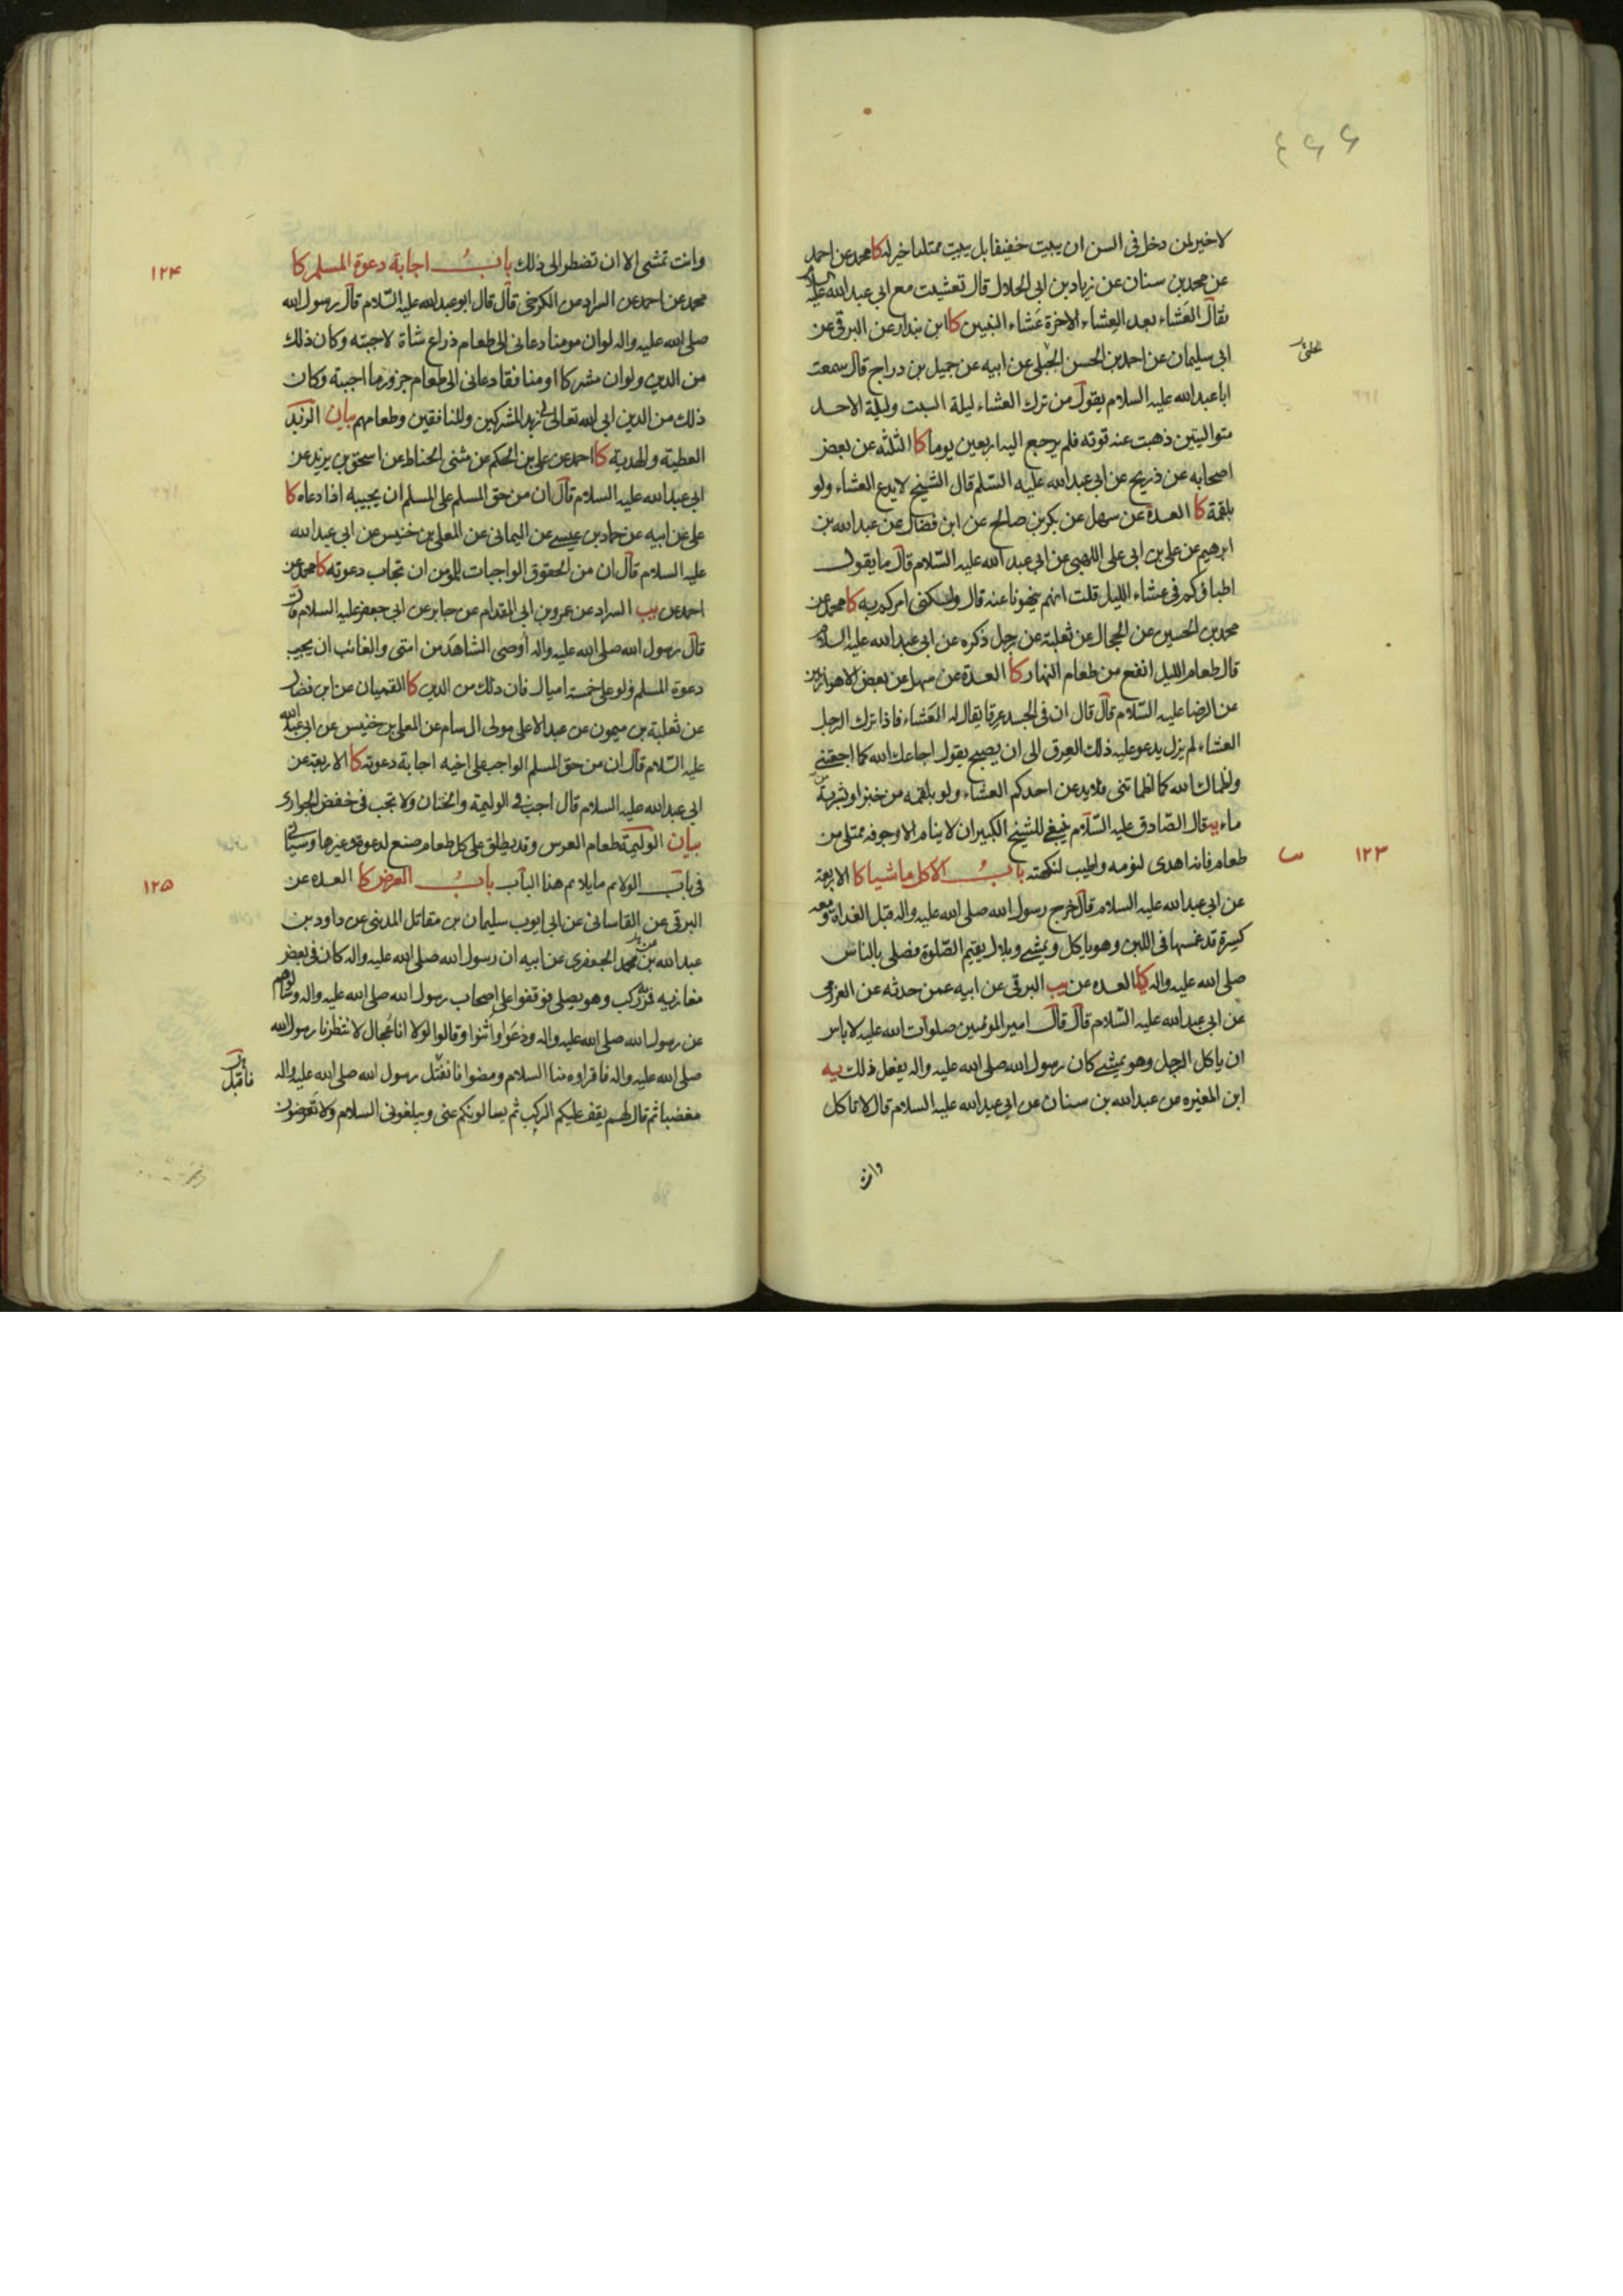 ۶۶۴
لا خير لمن دخل فى السن ان يبيت خفيفا بل يبيت ممتلئا خير له كا محمد عن احمد
عن محمد بن سنان عن زياد بن ابى الحلال قال تعشيت مع ابى عبد الله عليه السلام
فقال العَشاء بعد العِشاء الاخرة عَشاء النبيين كا ابن بندار عن البرقى عن
ابى سليمان عن احمد بن الحسن الجبلى عن ابيه عن جميل بن دراج قال سمعت
ابا عبد الله عليه السلام يقول من ترك العشاء ليلة السبت وليلة الاحد
متواليتين ذهبت عنه قوته فلم يرجع اليه اربعين يوما كا الثلثه عن بعض
اصحابه عن ذريح عن ابى عبد الله عليه السّلم قال الشيخ لا يدع العشاء ولو
بلقمة كا العدة عن سهل عن بكر بن صالح عن ابن فضال عن عبد الله بن
ابرهيم عن على بن ابى على اللهبى عن ابى عبد الله عليه السّلام قال ما يقول
اطباؤكم فى عشاء الليل قلت انهم ينهونا عنه قال ولكنى امركم به كا محمد عن
محمد بن الحسين عن الحجال عن ثعلبة عن رجل ذكره عن ابى عبد الله عليه السلام
قال طعام الليل انفع من طعام النهار كا العدة عن سهل عن بعض الاهوازيين
عن الرضا عليه السّلام قال قال ان فى الجسد عرقا يقال له العَشاء فاذا ترك الرجل
العشاء لم يزل يدعو عليه ذلك العِرق الى ان يصبح يقول اجاعك الله كما اجعتنى
واظماك الله كما اظماتنى فلا يدعن احدكم العشاء ولو بلقمه من خبز او بشربة من
ماء يه قال الصّادق عليه السّلام ينبغى للشيخ الكبير ان لا ينام الا وجوفه ممتلى من
طعام فانه اهدى لنومه واطيب لنكهته بابُ الاكل ماشيا كا الاربعة
۱۲۳
عن ابى عبد الله عليه السلام قال خرج رسول الله صلى الله عليه واله قبل الغداة ومعه
كِسرة قد غمسها فى اللبن وهو ياكل ويمشى وبلال يقيم الصّلوة فصلى بالناس
صلى الله عليه واله كا العده عن يب البرقى عن ابيه عمن حدثه عن العرزمى
عن ابى عبد الله عليه السّلام قال قال امير المؤمنين صلوات الله عليه لا باس
ان ياكل الرجل وهو يمشى كان رسول الله صلى الله عليه واله يفعل ذلك يه
ابن المغيره عن عبد الله بن سنان عن ابى عبد الله عليه السلام قال لا تاكل
وانت
وانت تمشى الا ان تضطر الى ذلك بابُ اجابة دعوة المسلم كا
۱۲۴
محمد عن احمد عن السراد عن الكرخى قال قال ابو عبد الله عليه السّلام قال رسول الله
صلى الله عليه واله لو ان مومنا دعانى الى طعام ذراع شاة لاجبته وكان ذلك
من الدين ولو ان مشركا او منافقا دعانى الى طعام جزور ما اجبته وكان
ذلك من الدين ابى الله تعالى لى زبد المشركين والمنافقين وطعامهم بيان الزبد
العطية والهدية كا احمد عن على بن الحكم عن مثنى الحناط عن اسحق بن يزيد عن
ابى عبد الله عليه السلام قال ان من حق المسلم على المسلم ان يجيبه اذا دعاه كا
على عن ابيه عن حماد بن عيسى عن اليمانى عن المعلى بن خنيس عن ابى عبد الله
عليه السلام قال ان من الحقوق الواجبات للمؤمن ان تجاب دعوته كا محمد عن
احمد عن يب السراد عن عمرو بن ابى المقدام عن جابر عن ابى جعفر عليه السلام قال
قال رسول الله صلى الله عليه واله اُوصى الشاهدَ من امتى والغائب ان يجيب
دعوة المسلم ولو على خمسة اميال فان ذلك من الدين كا القميان عن ابن فضال
عن ثعلبة بن ميمون عن عبد الاعلى مولى ال سام عن المعلى بن خنيس عن ابى عبد الله
عليه السّلام قال ان من حق المسلم الواجب على اخيه اجابة دعوته كا الاربعة عن
ابى عبد الله عليه السلام قال اجب فى الوليمة والختان ولا تجب فى خفض الجوارى
بيان الوليمة طعام العرس وقد يطلق على كل طعام صنع لدعوة وغيرها وسياتى
فى باب الولائم ما يلائم هذا الباب بابُ العرض كا العده عن
۱۲۵
البرقى عن القاسانى عن ابى ايوب سليمان بن مقاتل المدينى عن داود بن
عبد الله بن محمد الجعفرى عن ابيه ان رسول الله صلى الله عليه واله كان فى بعض
مغازيه فمرّ به ركب وهو يصلى فوقفوا على اصحاب رسول الله صلى الله عليه واله وسالوهم
عن رسول الله صلى الله عليه واله ودَعَوا واثنوا وقالوا لولا انا عُجال لانتظرنا رسول الله
صلى الله عليه واله فاقراوه منا السلام ومضوا فانفتل رسول الله صلى الله عليه واله
مغضبا ثم قال لهم يقف عليكم الركب ثم يسالونكم عنى ويبلغونى السلام ولا تَعرِضون
فاقبل